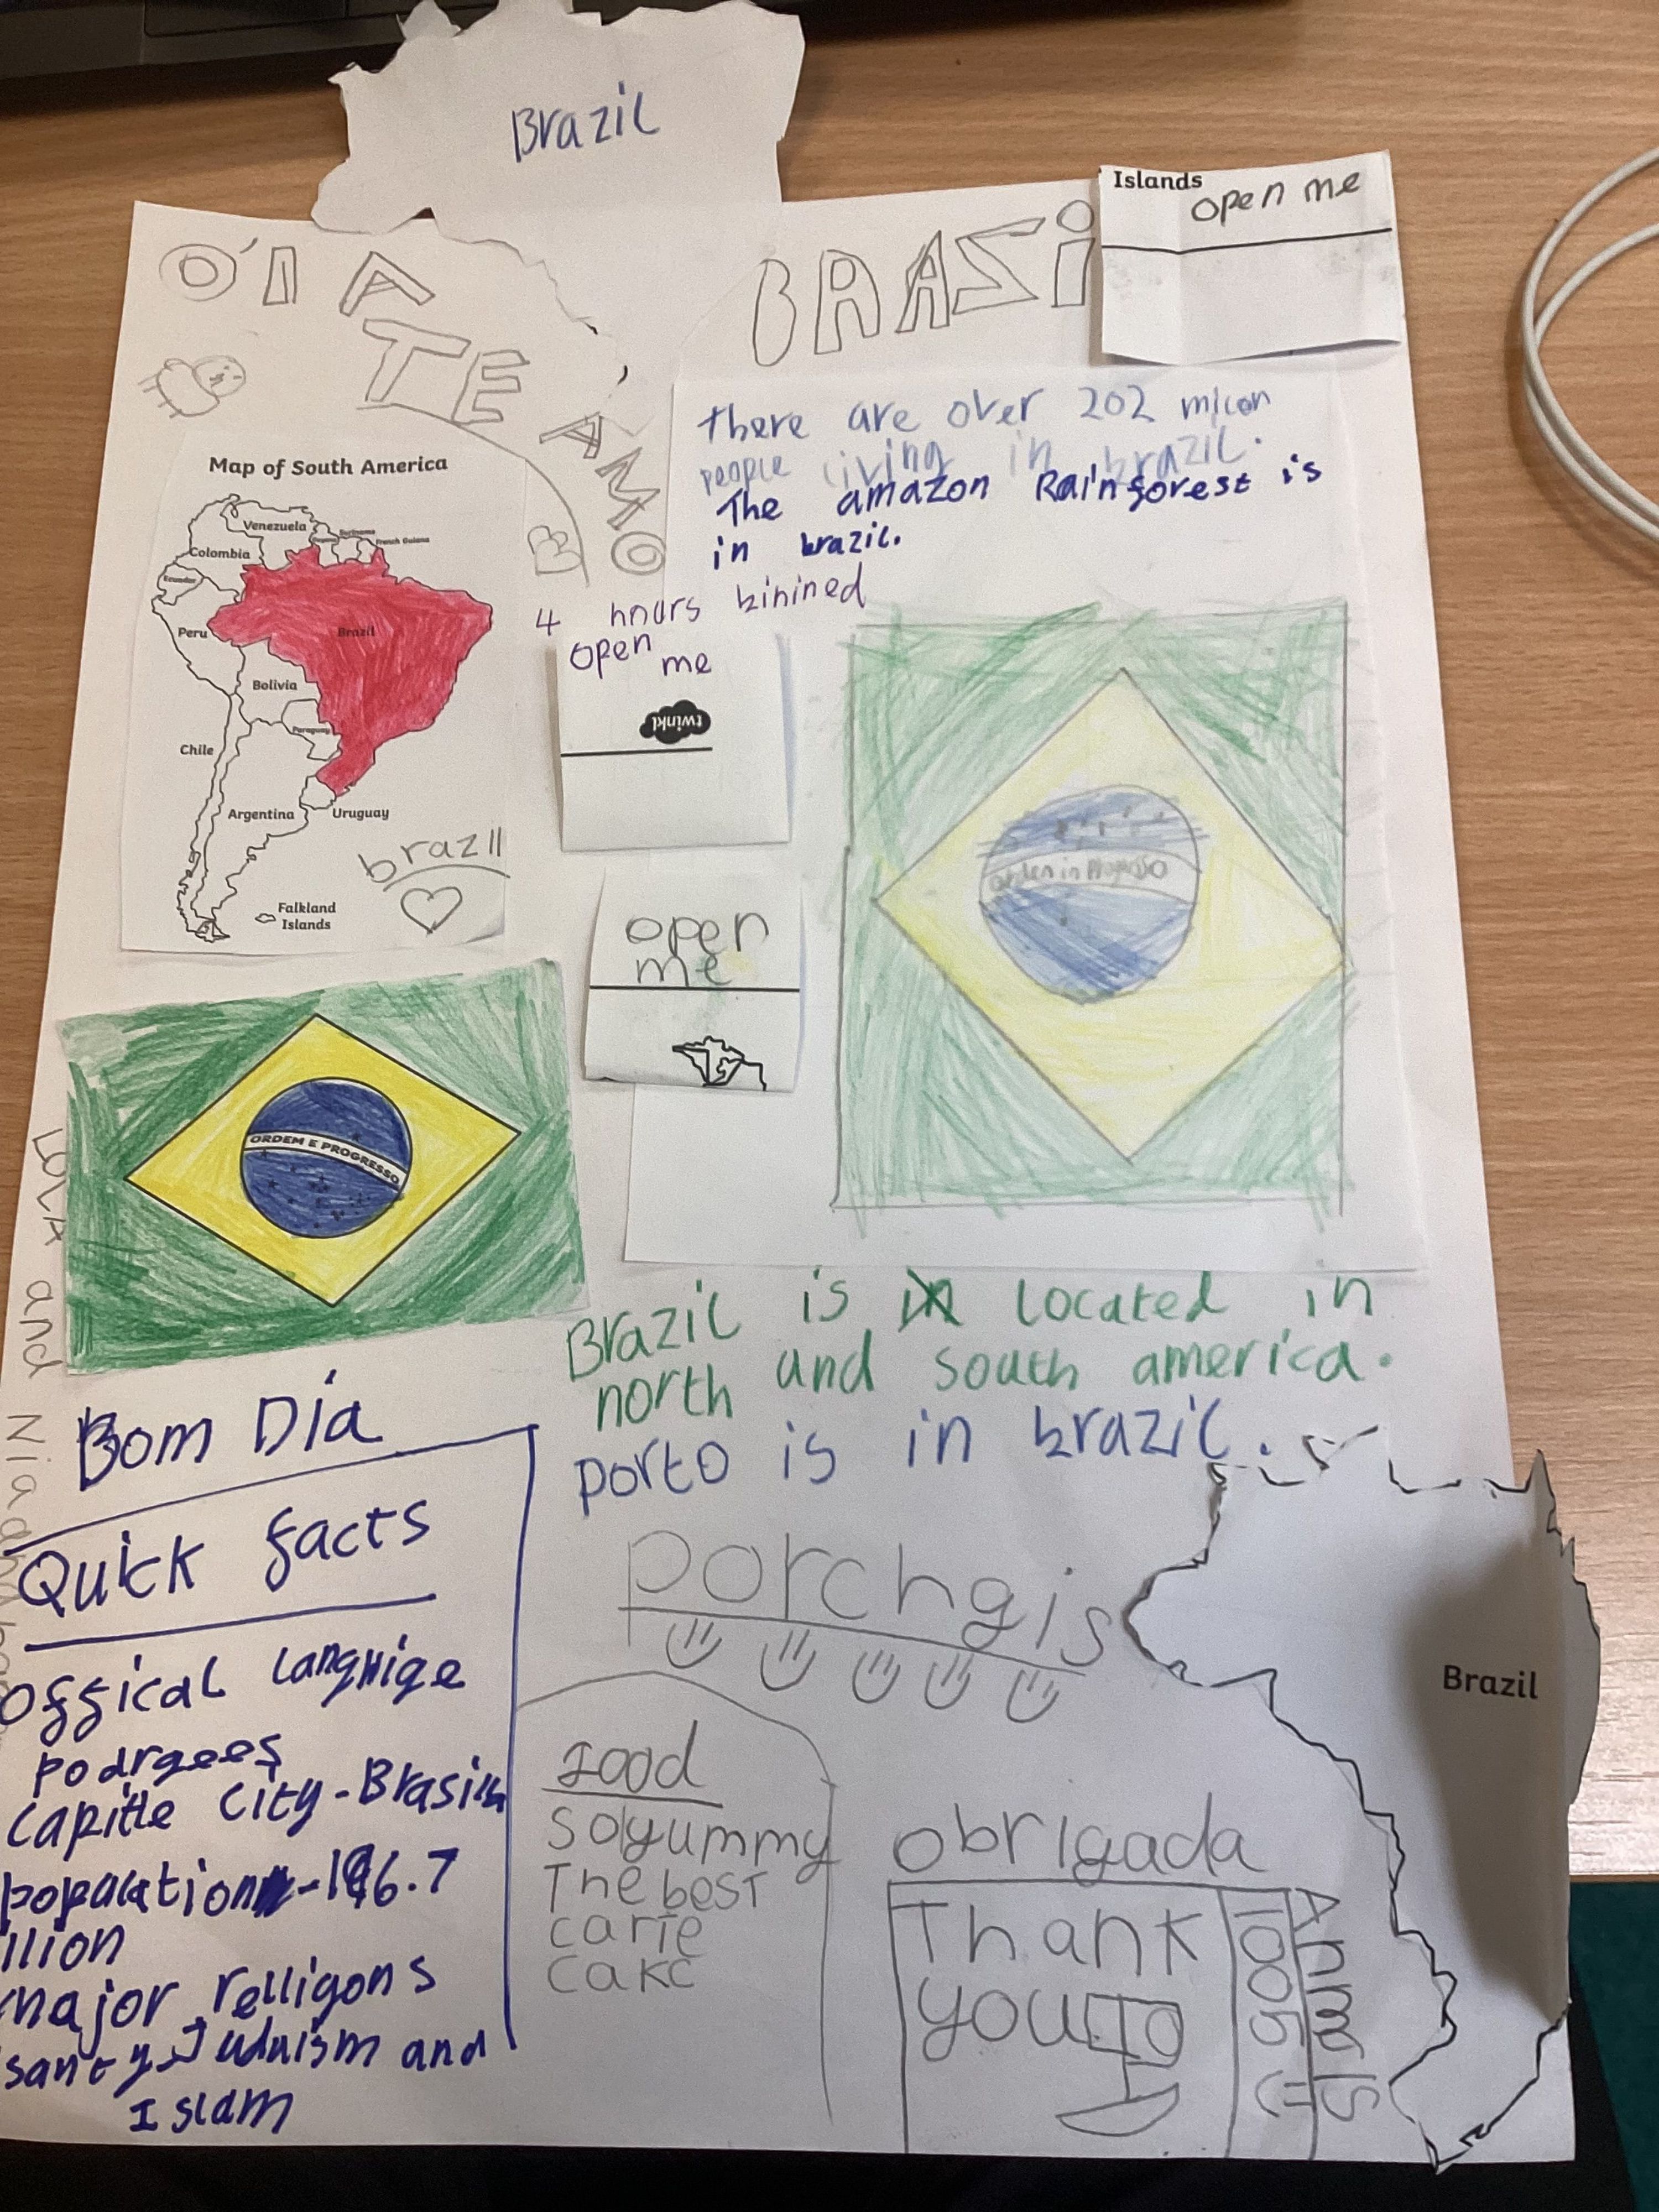 Brazil
O'IA
TE
AMO
BRASi
Islands
open me
there are over 202 milion
people living in brazil.
The amazon Rainforest is
in brazil.
4 hours binined
open me
twinkl
Map of South America
Venezuela
Colombia
Guyana
Suriname
French Guiana
Ecuador
Peru
Brazil
Bolivia
Paraguay
Chile
Argentina
Uruguay
Falkland
Islands
brazil
open
me
orden in Progreso
ORDEM E PROGRESSO
and Nia
Brazil is in located in
north and south america.
porto is in brazil.
Bom Dia
Quick facts
offical
podrgees
capitle City-Brasilia
population-196.7
llion
major relligons
santy, Juduism and
Islam
porchgis
Brazil
food
so yummy
The best
carte
cake
obrigada
Thank
you
100S
Anmals